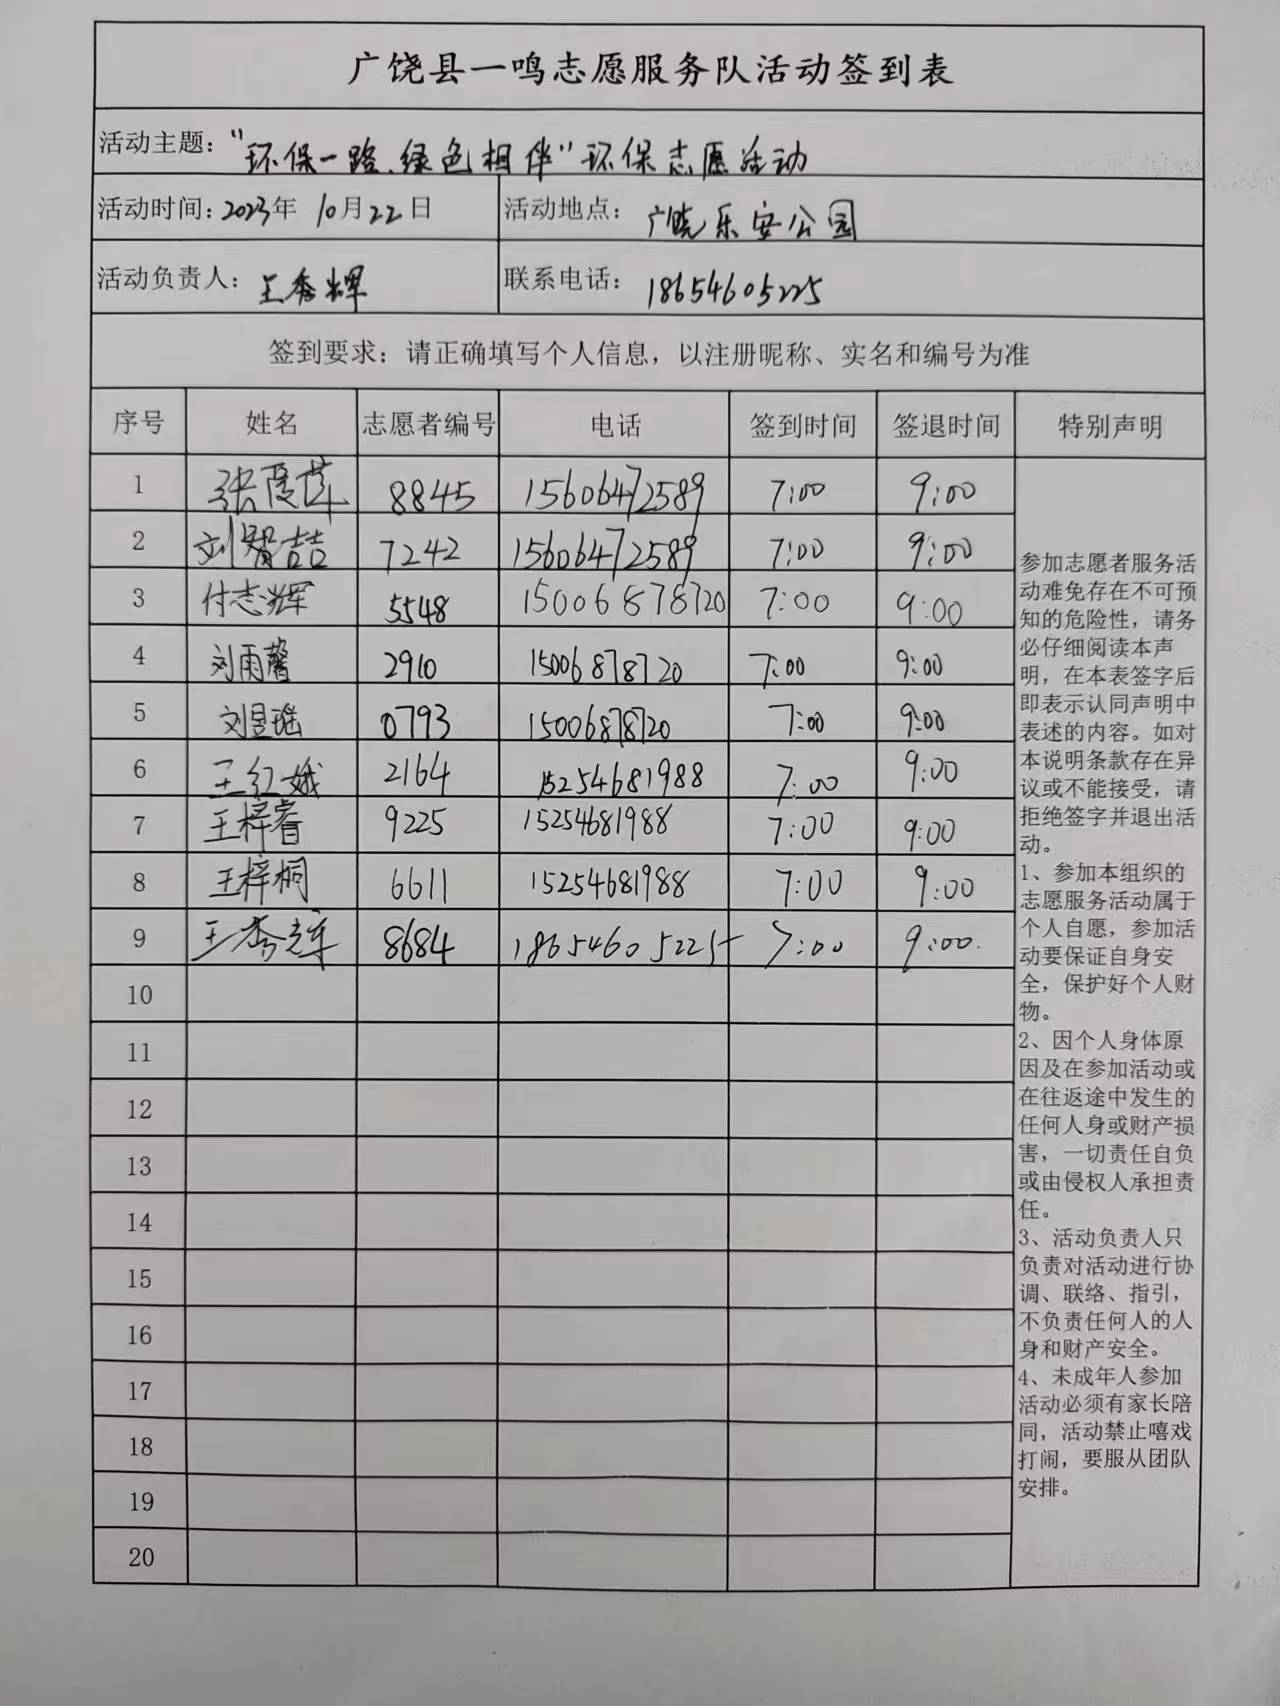 广饶县一鸣志愿服务队活动签到表
活动主题："环保一路、绿色相伴"环保志愿活动
活动时间：2023年 10月22日 活动地点：广饶乐安公园
活动负责人：王秀辉 联系电话：18654605225
签到要求：请正确填写个人信息，以注册昵称、实名和编号为准
序号 姓名 志愿者编号 电话 签到时间 签退时间 特别声明
1 张 8845 15606472589 7:00 9:00
2 刘智喆 7242 15606472589 7:00 9:00
3 付志辉 5548 15006878720 7:00 9:00
4 刘雨馨 2910 15006878720 7:00 9:00
5 刘昱瑶 0793 15006878720 7:00 9:00
6 王红娥 2164 15254681988 7:00 9:00
7 王梓睿 9225 15254681988 7:00 9:00
8 王梓桐 6611 15254681988 7:00 9:00
9 王秀辉 8684 18654605225 7:00 9:00.
10
11
12
13
14
15
16
17
18
19
20
参加志愿者服务活
动难免存在不可预
知的危险性，请务
必仔细阅读本声
明，在本表签字后
即表示认同声明中
表述的内容。如对
本说明条款存在异
议或不能接受，请
拒绝签字并退出活
动。
1、参加本组织的
志愿服务活动属于
个人自愿，参加活
动要保证自身安
全，保护好个人财
物。
2、因个人身体原
因及在参加活动或
在往返途中发生的
任何人身或财产损
害，一切责任自负
或由侵权人承担责
任。
3、活动负责人只
负责对活动进行协
调、联络、指引，
不负责任何人的人
身和财产安全。
4、未成年人参加
活动必须有家长陪
同，活动禁止嘻戏
打闹，要服从团队
安排。